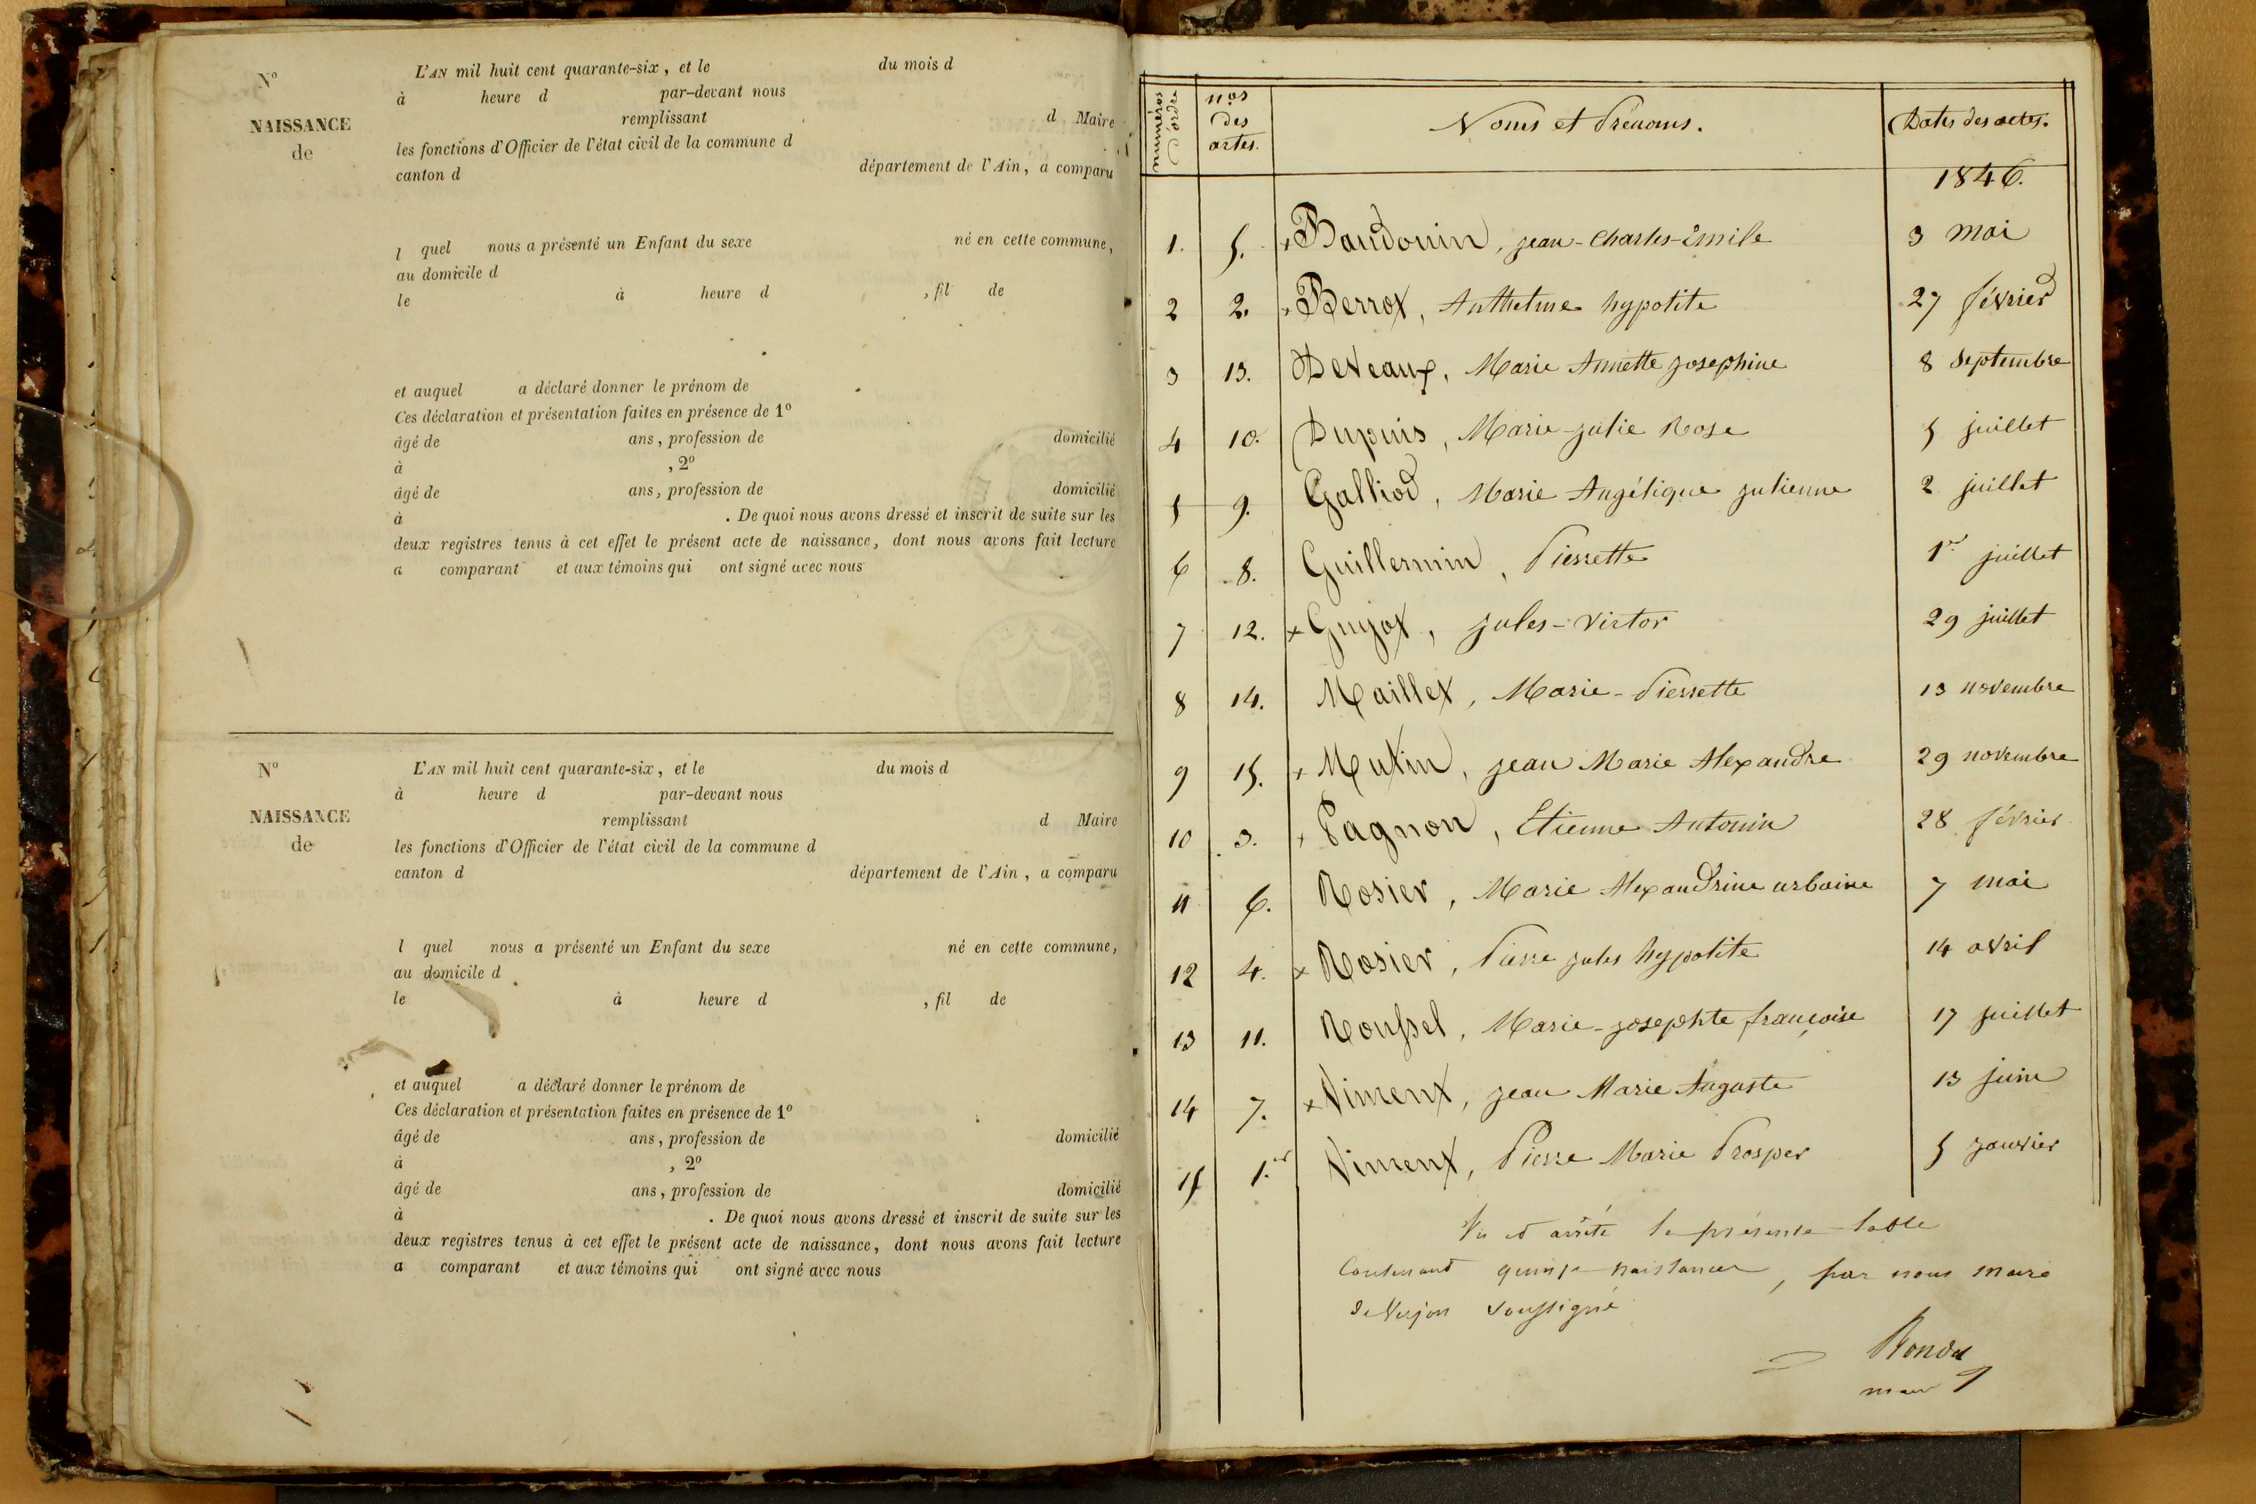 Nº
L'AN mil huit cent quarante-six, et le du mois d
à heure d par-devant nous
NAISSANCE
remplissant d Maire
de
les fonctions d'Officier de l'état civil de la commune d
canton d département de l'Ain, a comparu
l quel nous a présenté un Enfant du sexe né en cette commune,
au domicile d
le à heure d , fil de
et auquel a déclaré donner le prénom de
Ces déclaration et présentation faites en présence de 1º
âgé de ans, profession de domicilié
à , 2º
âgé de ans, profession de domicilié
à . De quoi nous avons dressé et inscrit de suite sur les
deux registres tenus à cet effet le présent acte de naissance, dont nous avons fait lecture
a comparant et aux témoins qui ont signé avec nous
Nº
L'AN mil huit cent quarante-six, et le du mois d
à heure d par-devant nous
NAISSANCE
remplissant d Maire
de
les fonctions d'Officier de l'état civil de la commune d
canton d département de l'Ain, a comparu
l quel nous a présenté un Enfant du sexe né en cette commune,
au domicile d
le à heure d , fil de
et auquel a déclaré donner le prénom de
Ces déclaration et présentation faites en présence de 1º
âgé de ans, profession de domicilié
à , 2º
âgé de ans, profession de domicilié
à . De quoi nous avons dressé et inscrit de suite sur les
deux registres tenus à cet effet le présent acte de naissance, dont nous avons fait lecture
a comparant et aux témoins qui ont signé avec nous
numéros d'ordre
nos des actes.
Noms et Prénoms.
Dates des actes.
1846.
1. 5. + Baudouin, jean-Charles-Emile 3 mai
2 2. + Berrot, Anthelme hypolite 27 février
3 13. Deveaux, Marie Annette josephine 8 septembre
4 10. Dupuis, Marie-julie Rose 5 juillet
5 9. Galliod, Marie Angélique julienne 2 juillet
6 8. Guillermin, Pierrette 1er juillet
7 12. x Guyot, jules-victor 29 juillet
8 14. Maillet, Marie-Pierrette 13 novembre
9 15. + Mutin, jean Marie Alexandre 29 novembre
10 3. + Pagnon, Etienne Antonin 28 février
11 6. Rosier, Marie Alexandrine urbaine 7 mai
12 4. x Rosier, Pierre jules hypolite 14 avril
13 11. Roussel, Marie-josephte françoise 17 juillet
14 7. x Niment, jean Marie Auguste 13 juin
15 1.er Niment, Pierre Marie Prosper 5 janvier
Vu et arrêté la présente table
Contenant quinze naissances, par nous maire
de Verjon soussigné
maire